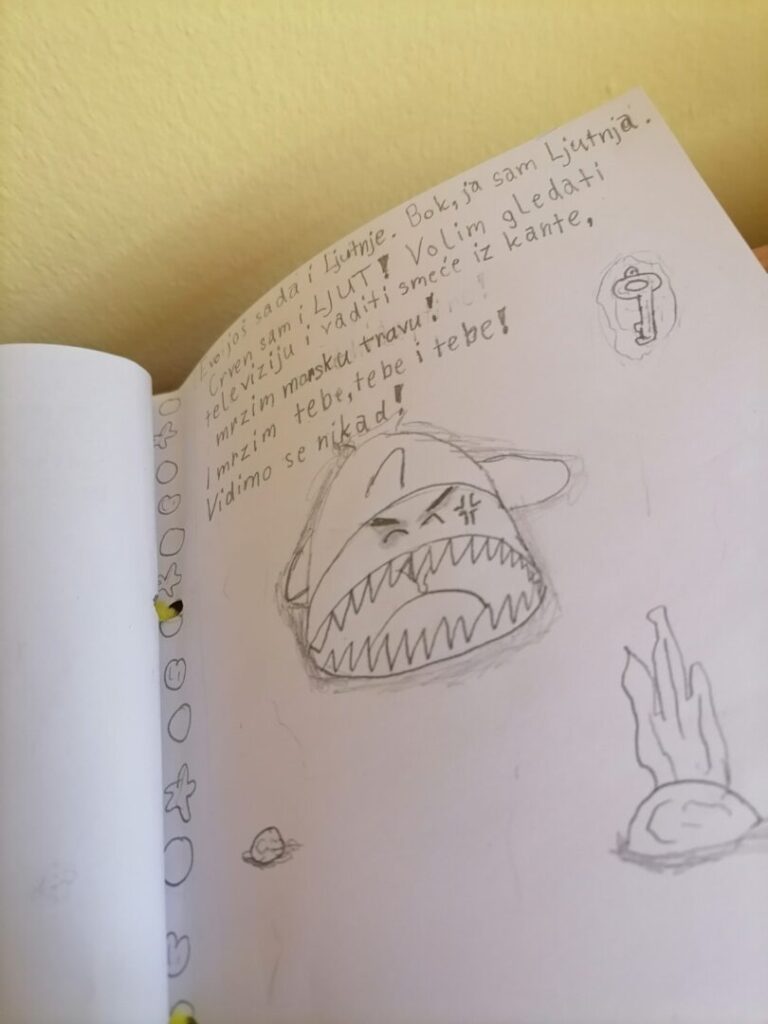 Evo još sada i Ljutnje. Bok, ja sam Ljutnja.
Crven sam i LJUT! Volim gledati
televiziju i vaditi smeće iz kante,
mrzim morsku travu!
I mrzim tebe, tebe i tebe!
Vidimo se nikad!